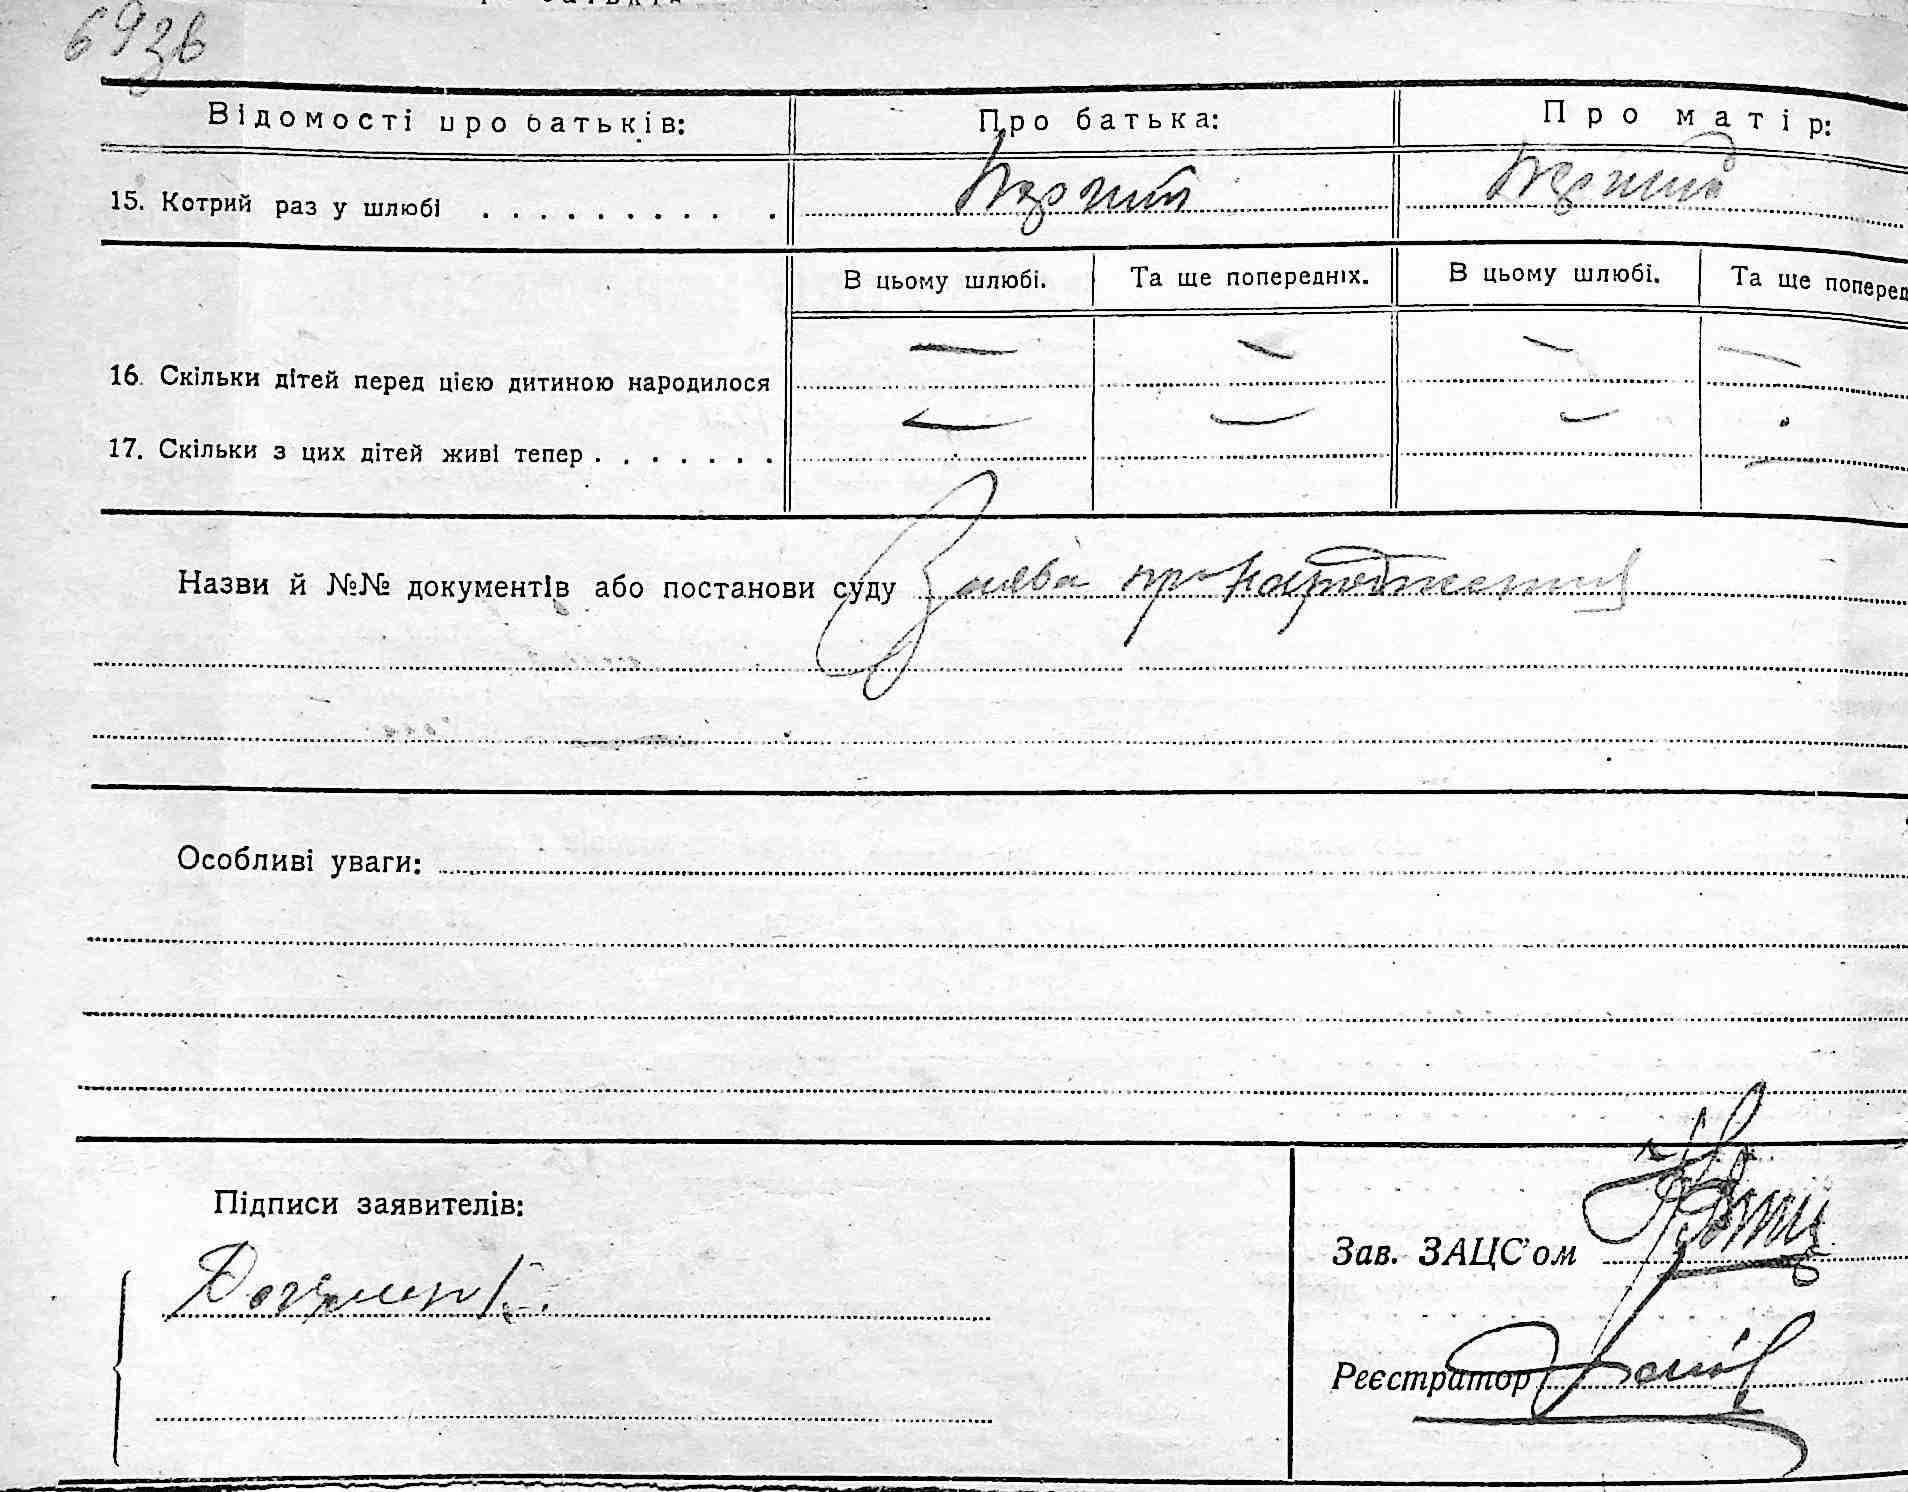 69зв
Відомості про батьків: Про батька: Про матір:
15. Котрий раз у шлюбі . . . . . . . . . . Перший Перший
В цьому шлюбі. Та ще попередніх. В цьому шлюбі. Та ще поперед
16. Скільки дітей перед цією дитиною народилося — — — —
17. Скільки з цих дітей живі тепер . . . . . . . — — — —
Назви й №№ документів або постанови суду Заява про народження
Особливі уваги:
Підписи заявителів:
Зав. ЗАЦС'ом
Реєстратор